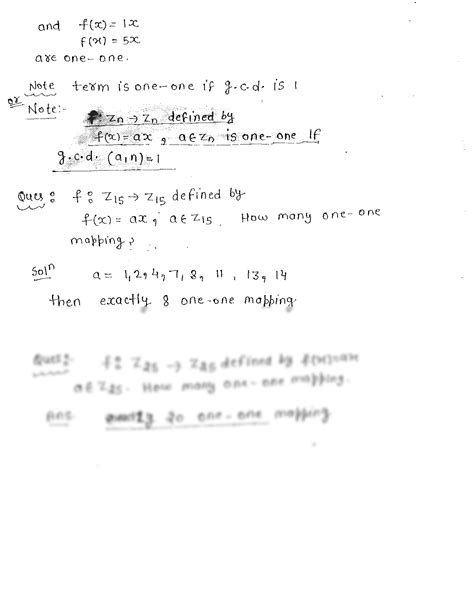 and f(x) = 1x
f(x) = 5x
are one-one.
Note term is one-one if g.c.d. is 1
or
Note:-
f: Zn → Zn defined by
f(x) = ax, a ∈ Zn is one-one If
g.c.d. (a,n) = 1
Ques: f: Z15 → Z15 defined by
f(x) = ax, a ∈ Z15. How many one-one
mapping?
Solⁿ a = 1,2,4,7,8, 11, 13, 14
then exactly 8 one-one mapping.
Ques:- f: Z25 → Z25 defined by f(x)=ax
a ∈ Z25. How many one-one mapping.
Ans 20 one-one mapping